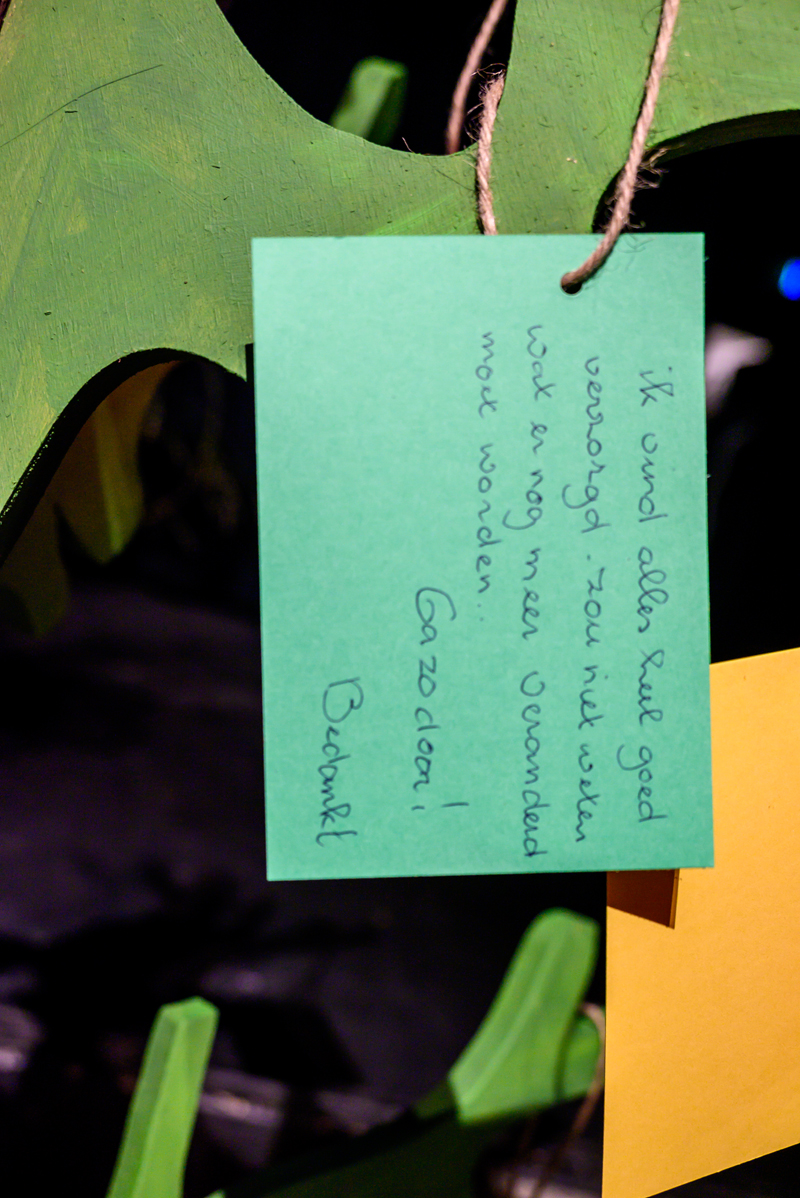 ik vind alles heel goed
verzorgd. zou niet weten
wat er nog meer veranderd
moet worden..
Ga zo door!
Bedankt